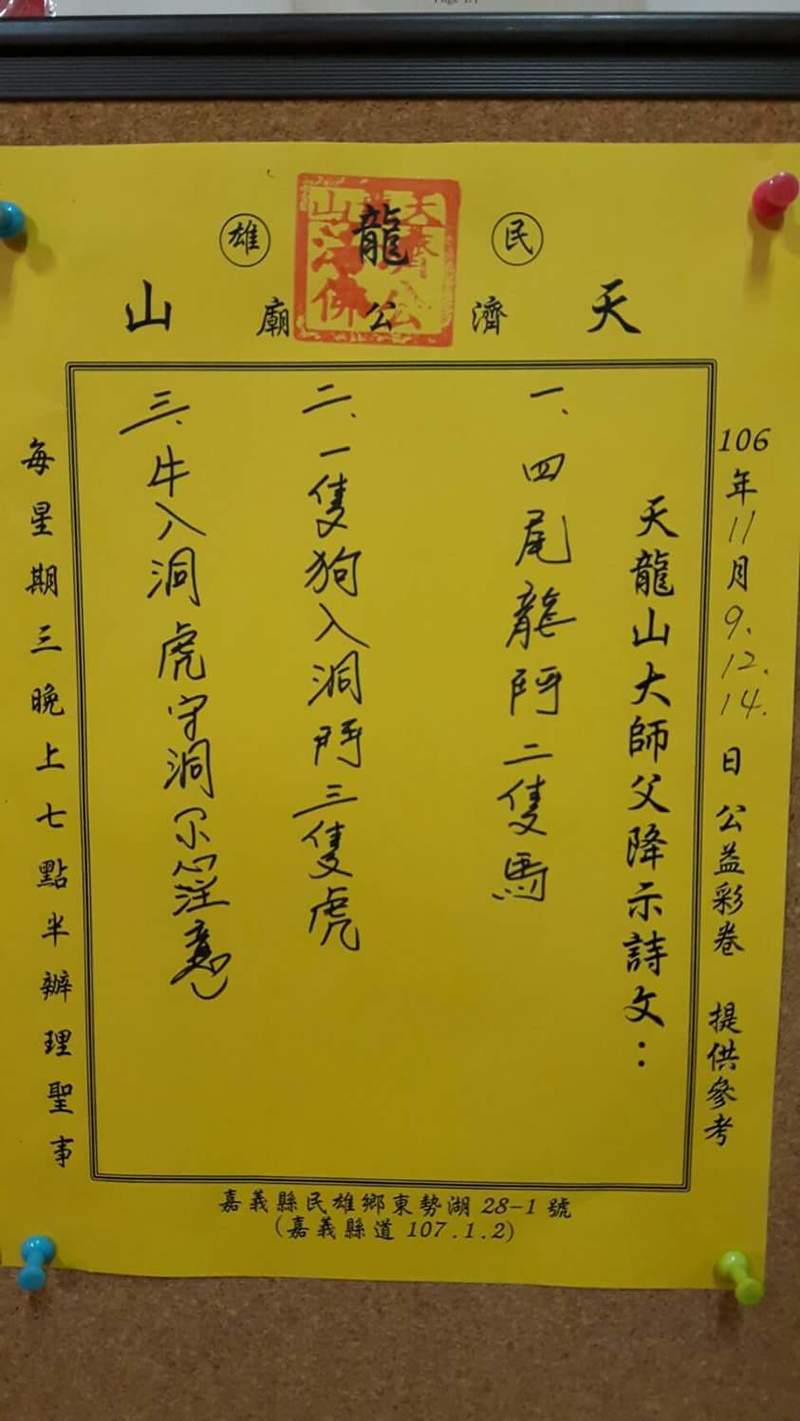 民雄
天龍山
濟公廟
106年11月9.12.14.日公益彩卷 提供參考
天龍山大師父降示詩文：
一、四尾龍鬥二隻馬
二、一隻狗入洞鬥三隻虎
三、牛入洞虎守洞小心注意
每星期三晚上七點半辦理聖事
嘉義縣民雄鄉東勢湖 28-1 號
(嘉義縣道 107.1.2)